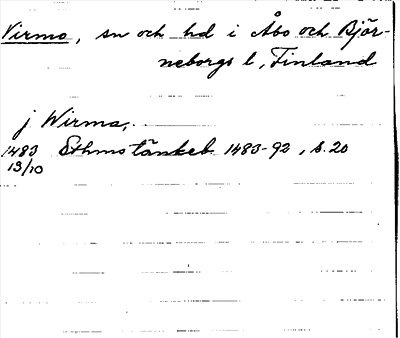 Virmo, sn och hd i Åbo och Björ-
neborgs l, Finland
j Wirma,
1483 Sthms tänkeb 1483-92, s. 20
13/10